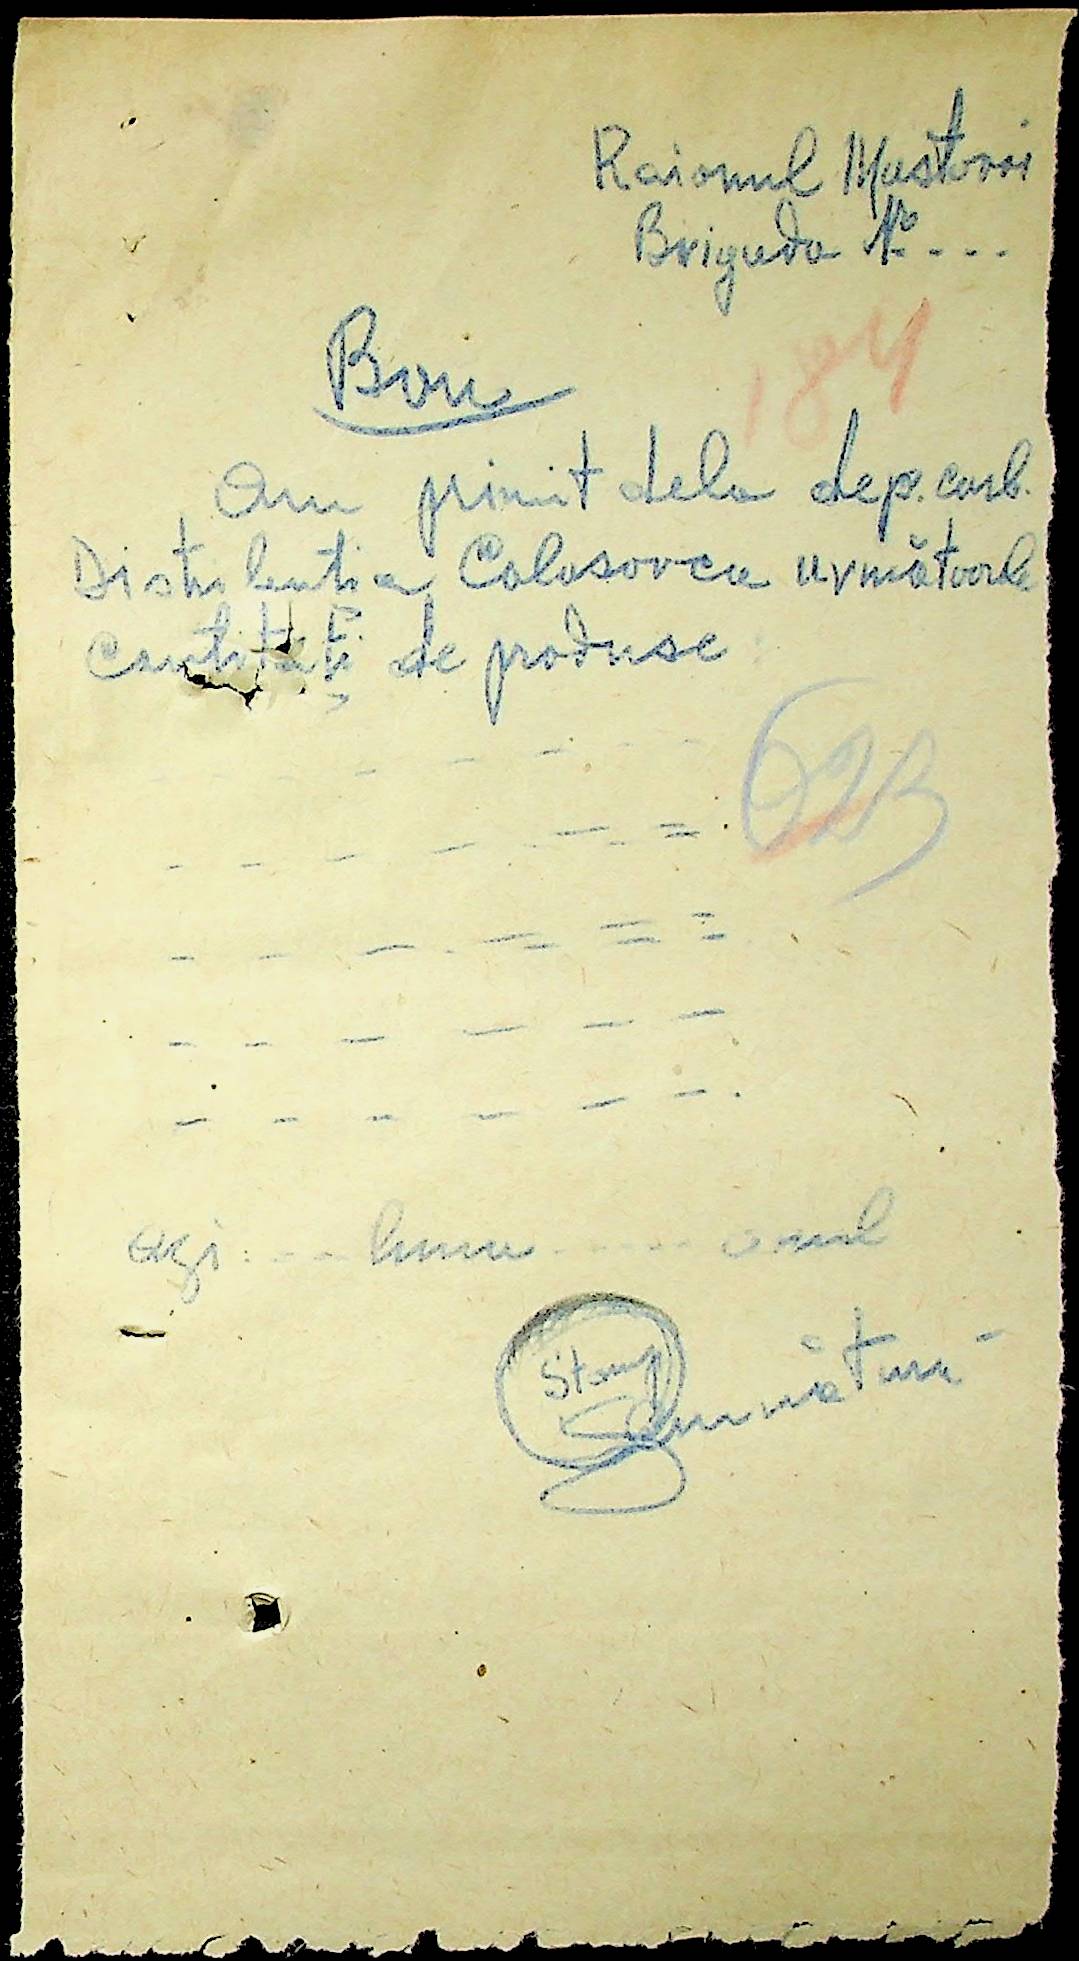 Raionul Mostovoi
Brigada № - - -
Bon
184
Am primit dela dep. carb.
Distributia Colosovca următoarele
Cantități de produse
623
azi: - - - luna - - - - - anul
Stamp
Semnătura